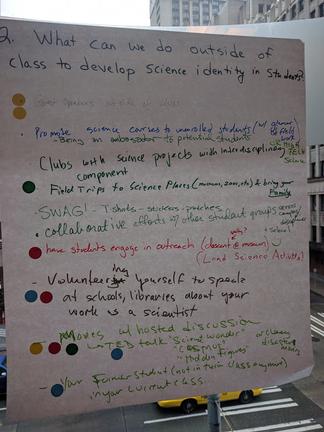 2. What can we do outside of
class to develop Science identity in Students?
Promote science courses to unrolled students (w/ alumni
- Being an ambassador to potential students
Clubs with science projects with interdisciplinary
component
Field Trips to Science Places (museums, zoos, etc) & bring your
Family
SWAG! - T-shirts - stickers - patches
collaborative efforts w/ other student groups across
have students engage in outreach (
(Land Science Activities)
- Volunteering yourself to speak
at schools, libraries about your
work as a scientist
- Movies w/ hosted discussion
TED talk "Science wonder"
"cosmos"
"Hidden Figures"
- Your Former student (not in turn class anymore)
in your current class.